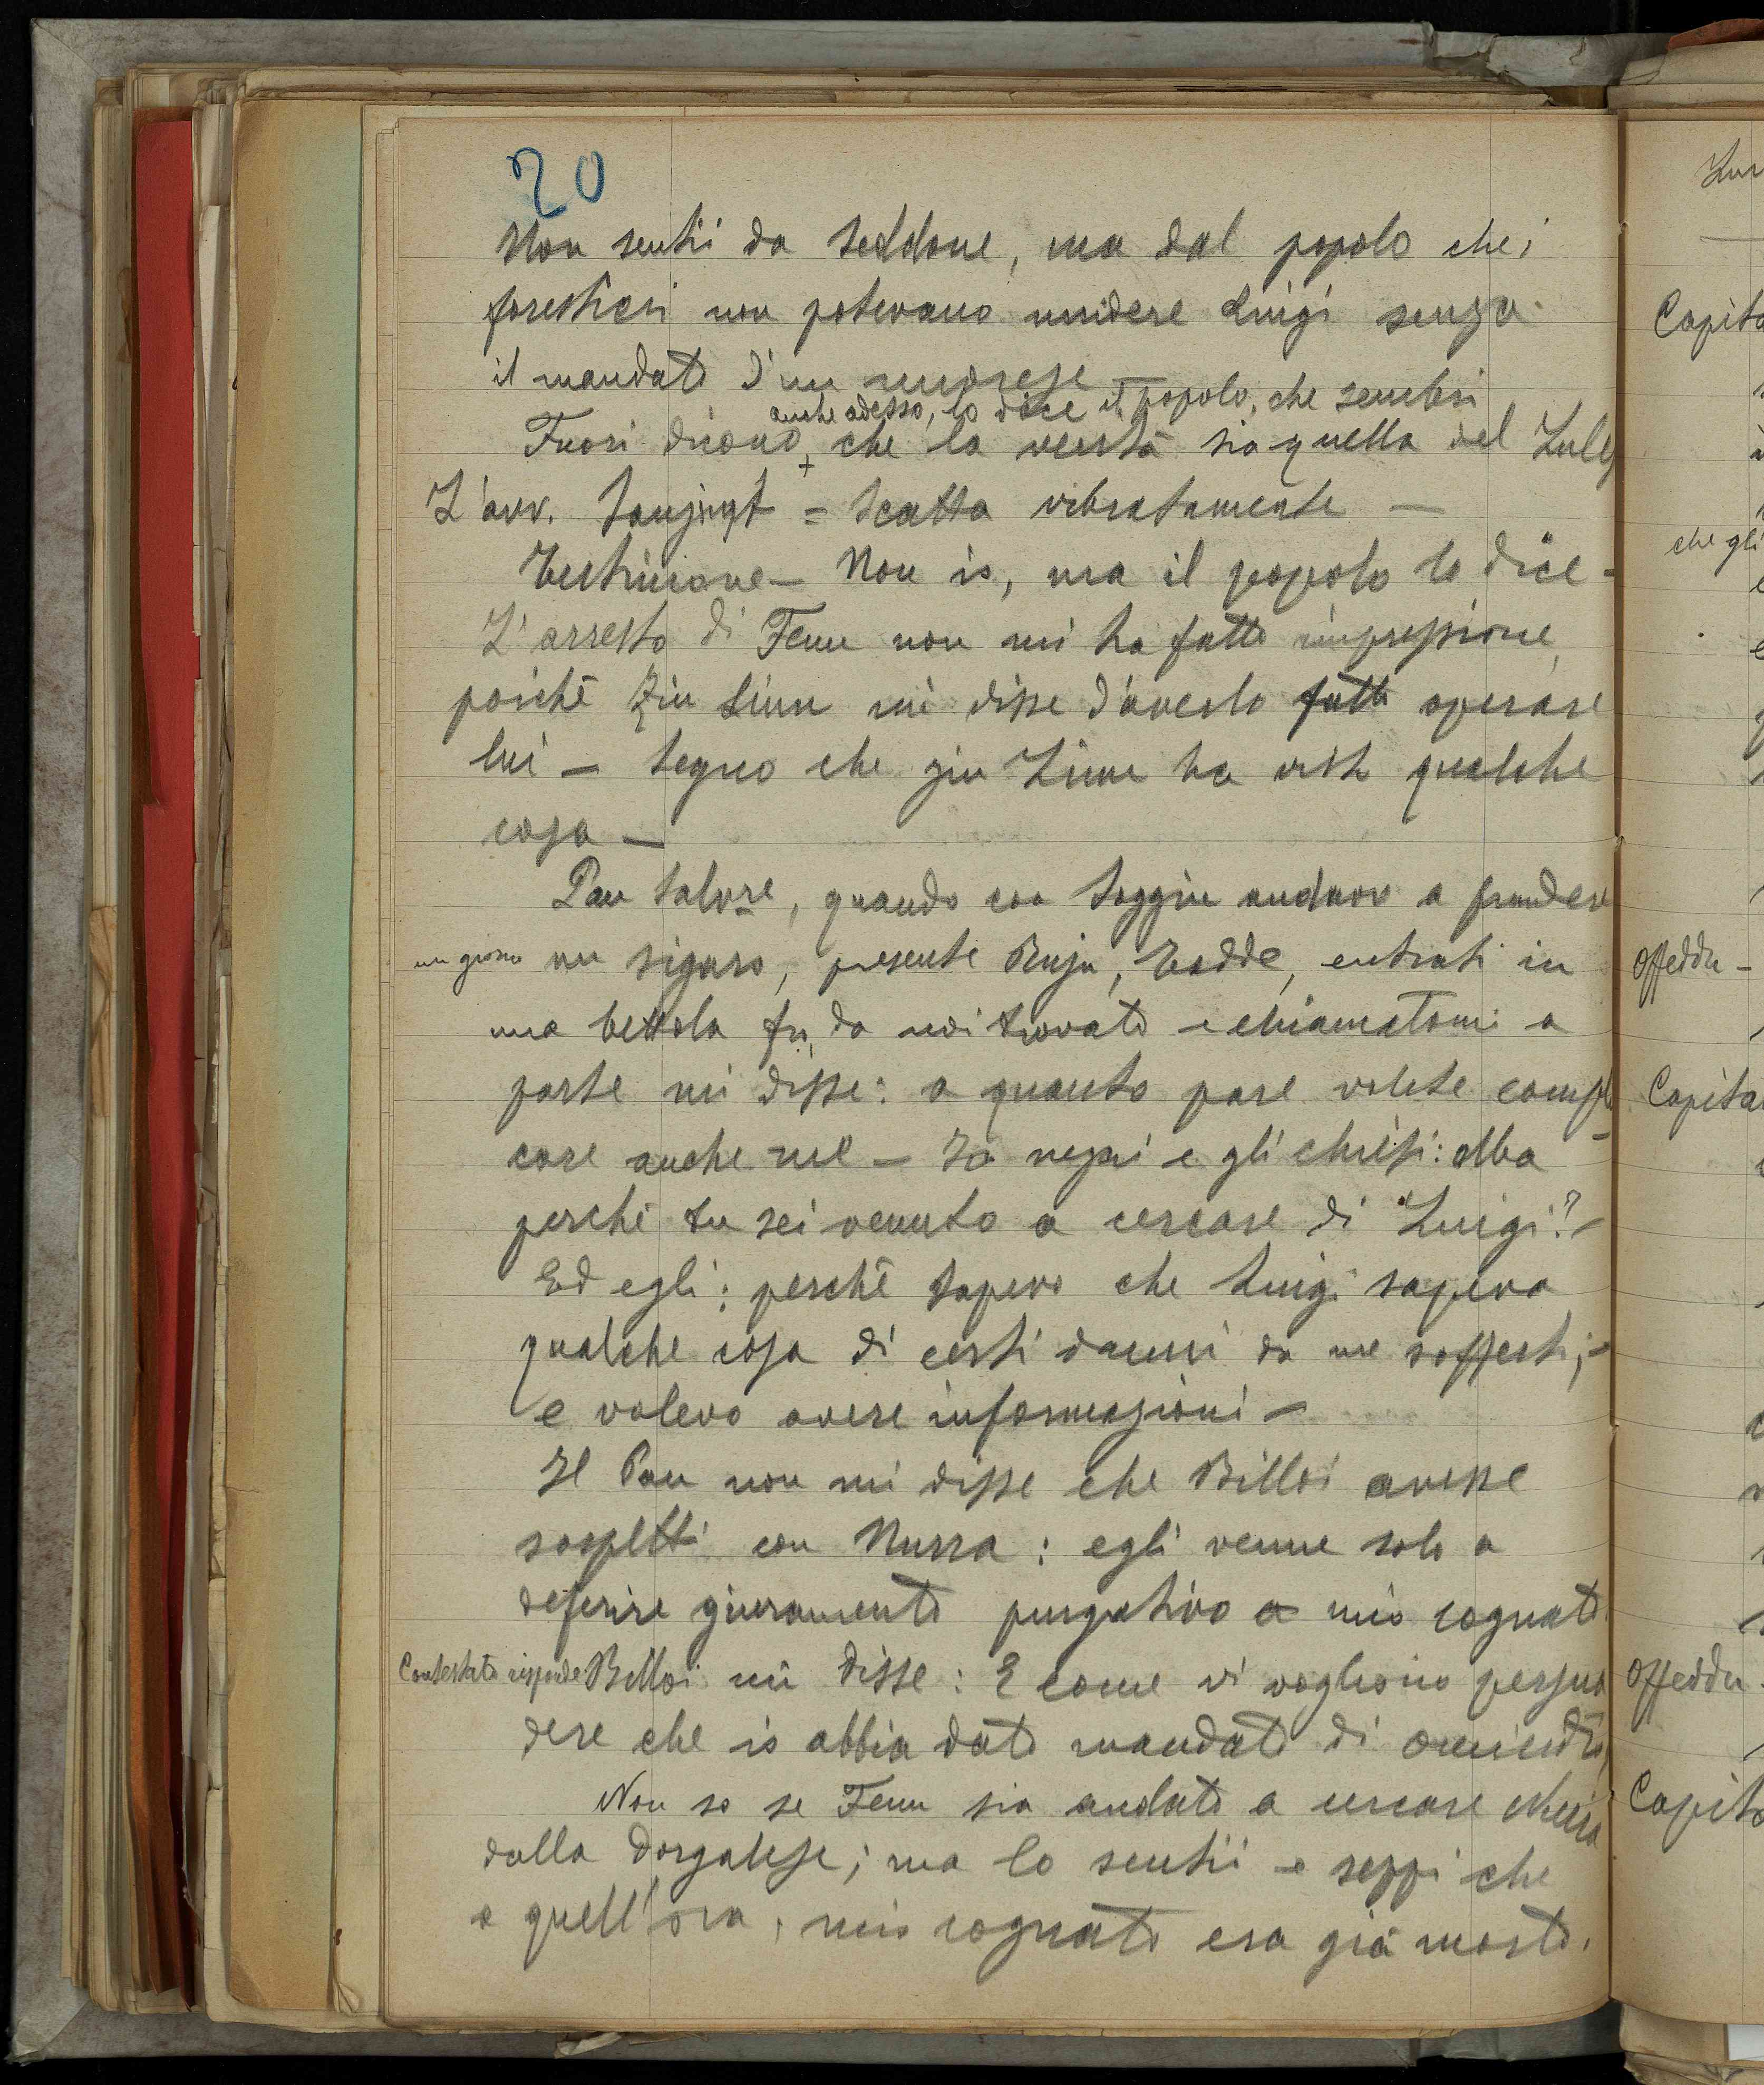 20
Non sentii da Seddone, ma dal popolo che i
forestieri non potevano uccidere Luigi senza
il mandato d'un nuorese —
anche adesso, lo dice il popolo, che sembri
Fuori dicono + che la verità sia quella del
L'avv. = Scatta vibratamente —
Testimone — Non io, ma il popolo lo dice —
L'arresto di Fenu non mi ha fatto impressione,
poichè Ziu mi disse d'averlo fatto operare
lui — Segno che ziu ha visto qualche
cosa —
Pau Salvore, quando con Soggiu andavo a prender
un giorno un sigaro, presente Ruju, Todde, entrati in
una bettola fu da noi trovato e chiamatomi a
parte mi disse: a quanto pare volete compli
care anche me — Io negai e gli chiesi: Ma
perchè tu sei venuto a cercare di Luigi? —
Ed egli: perchè sapevo che Luigi sapeva
qualche cosa di certi danni da me sofferti; —
e volevo avere informazioni —
Il Pau non mi disse che Billoi avesse
sospetti con Nurra: egli venne solo a
deferire giuramento purgativo a mio cognato
Contestato risponde Billoi mi disse: E come vi vogliono persua
dere che io abbia dato mandato di omicidio,
Non so se Fenu sia andato a cercare
dalla Dorgalese; ma lo sentii e seppi che
a quell'ora, mio cognato era già morto.
Capita
che gli
Offeddu —
Capita
Offeddu
Capita